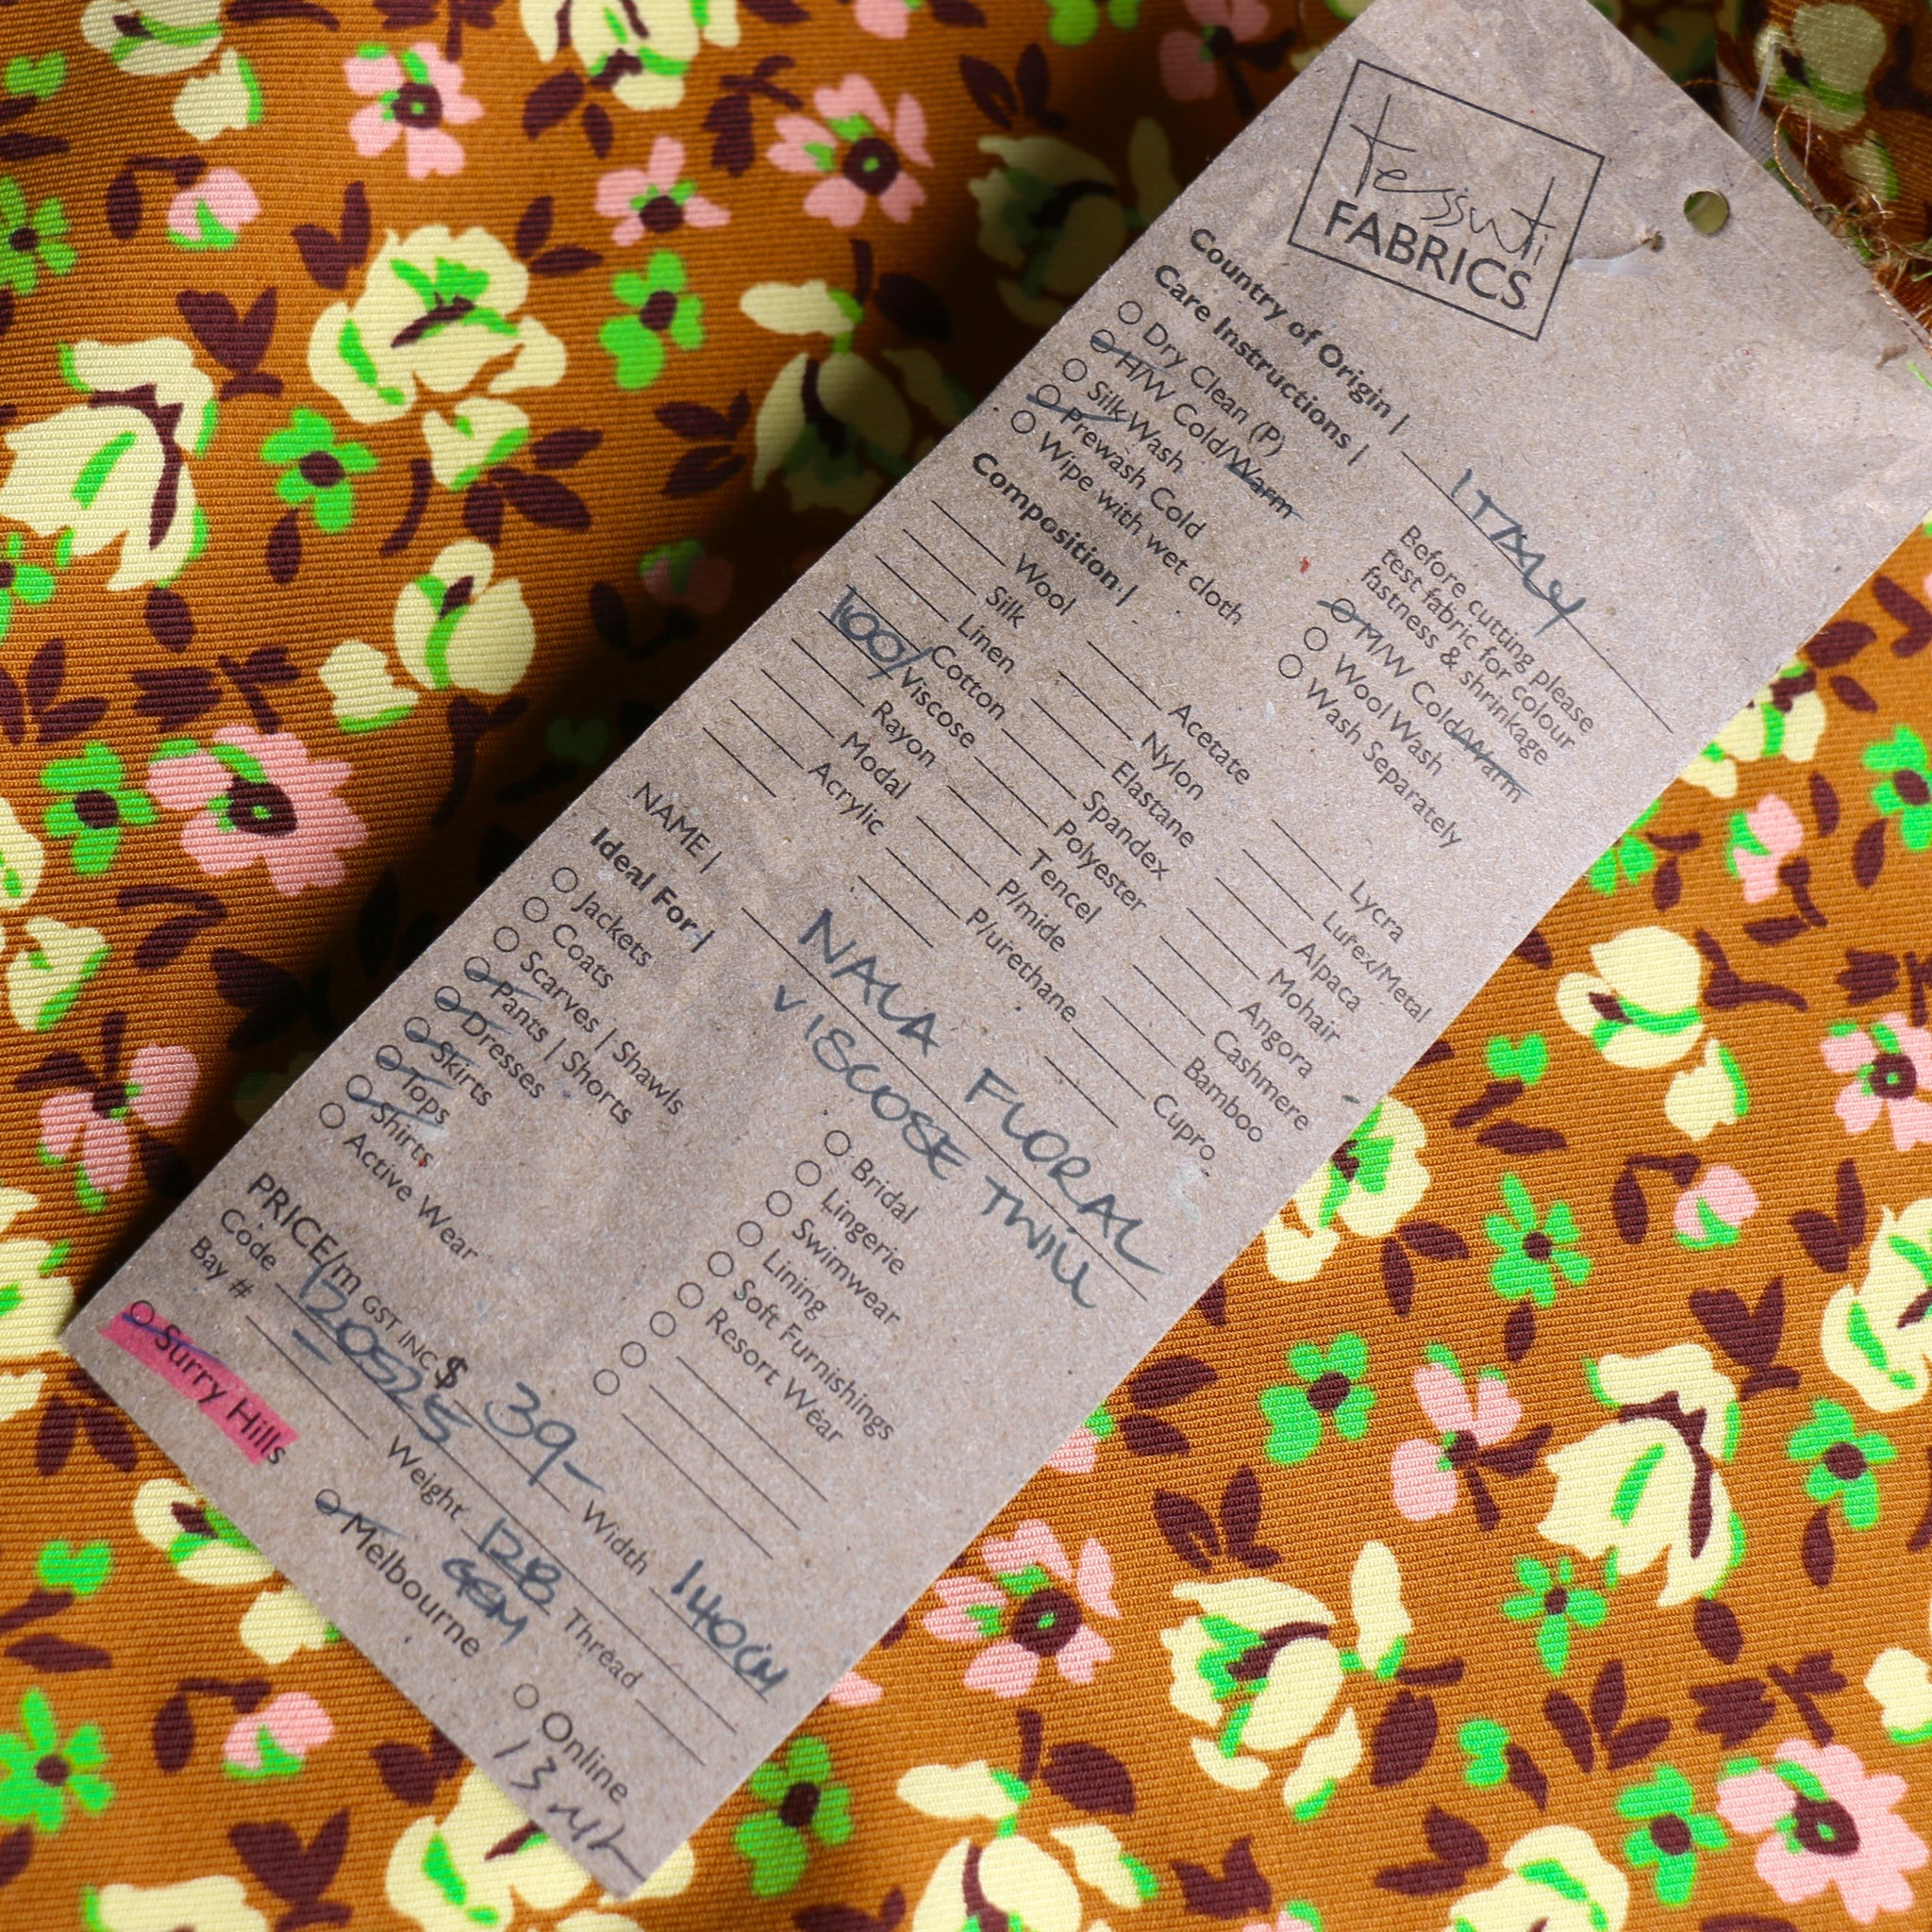 tessuti
FABRICS
Country of Origin | ITALY
Care Instructions |
Before cutting please
test fabric for colour
fastness & shrinkage
Dry Clean (P)
H/W Cold/Warm
M/W Cold/Warm
Silk Wash
Wool Wash
Prewash Cold
Wash Separately
Wipe with wet cloth
Composition |
Wool
Acetate
Lycra
Silk
Nylon
Lurex/Metal
Linen
Elastane
Alpaca
Cotton
Spandex
Mohair
100/ Viscose
Polyester
Angora
Rayon
Tencel
Cashmere
Modal
P/mide
Bamboo
Acrylic
P/urethane
Cupro
NAME | NALA FLORAL
VISCOSE TWILL
Ideal For |
Jackets
Bridal
Coats
Lingerie
Scarves | Shawls
Swimwear
Pants | Shorts
Lining
Dresses
Soft Furnishings
Skirts
Resort Wear
Tops
Shirts
Active Wear
PRICE/m GST INC $ 39- Width 140cm
Code 120525 Weight 128 Thread
GSM
Bay #
Surry Hills
Melbourne
Online